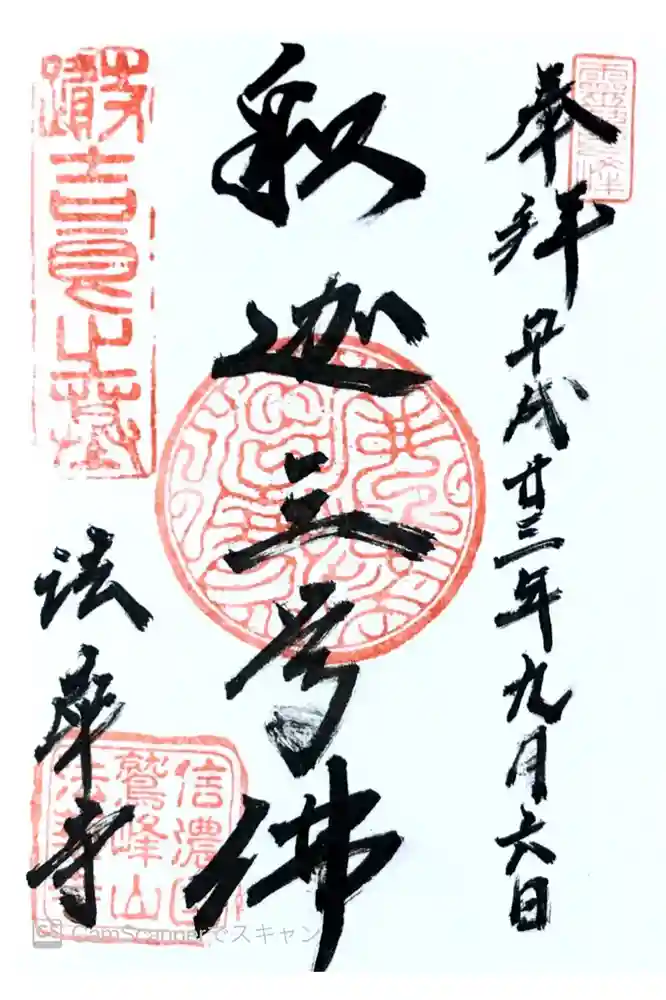 奉拝 平成廿三年九月六日
釈迦三尊佛
吉良之墓
法華寺
信濃国
鷲峰山
法華寺
CS CamScannerでスキャン